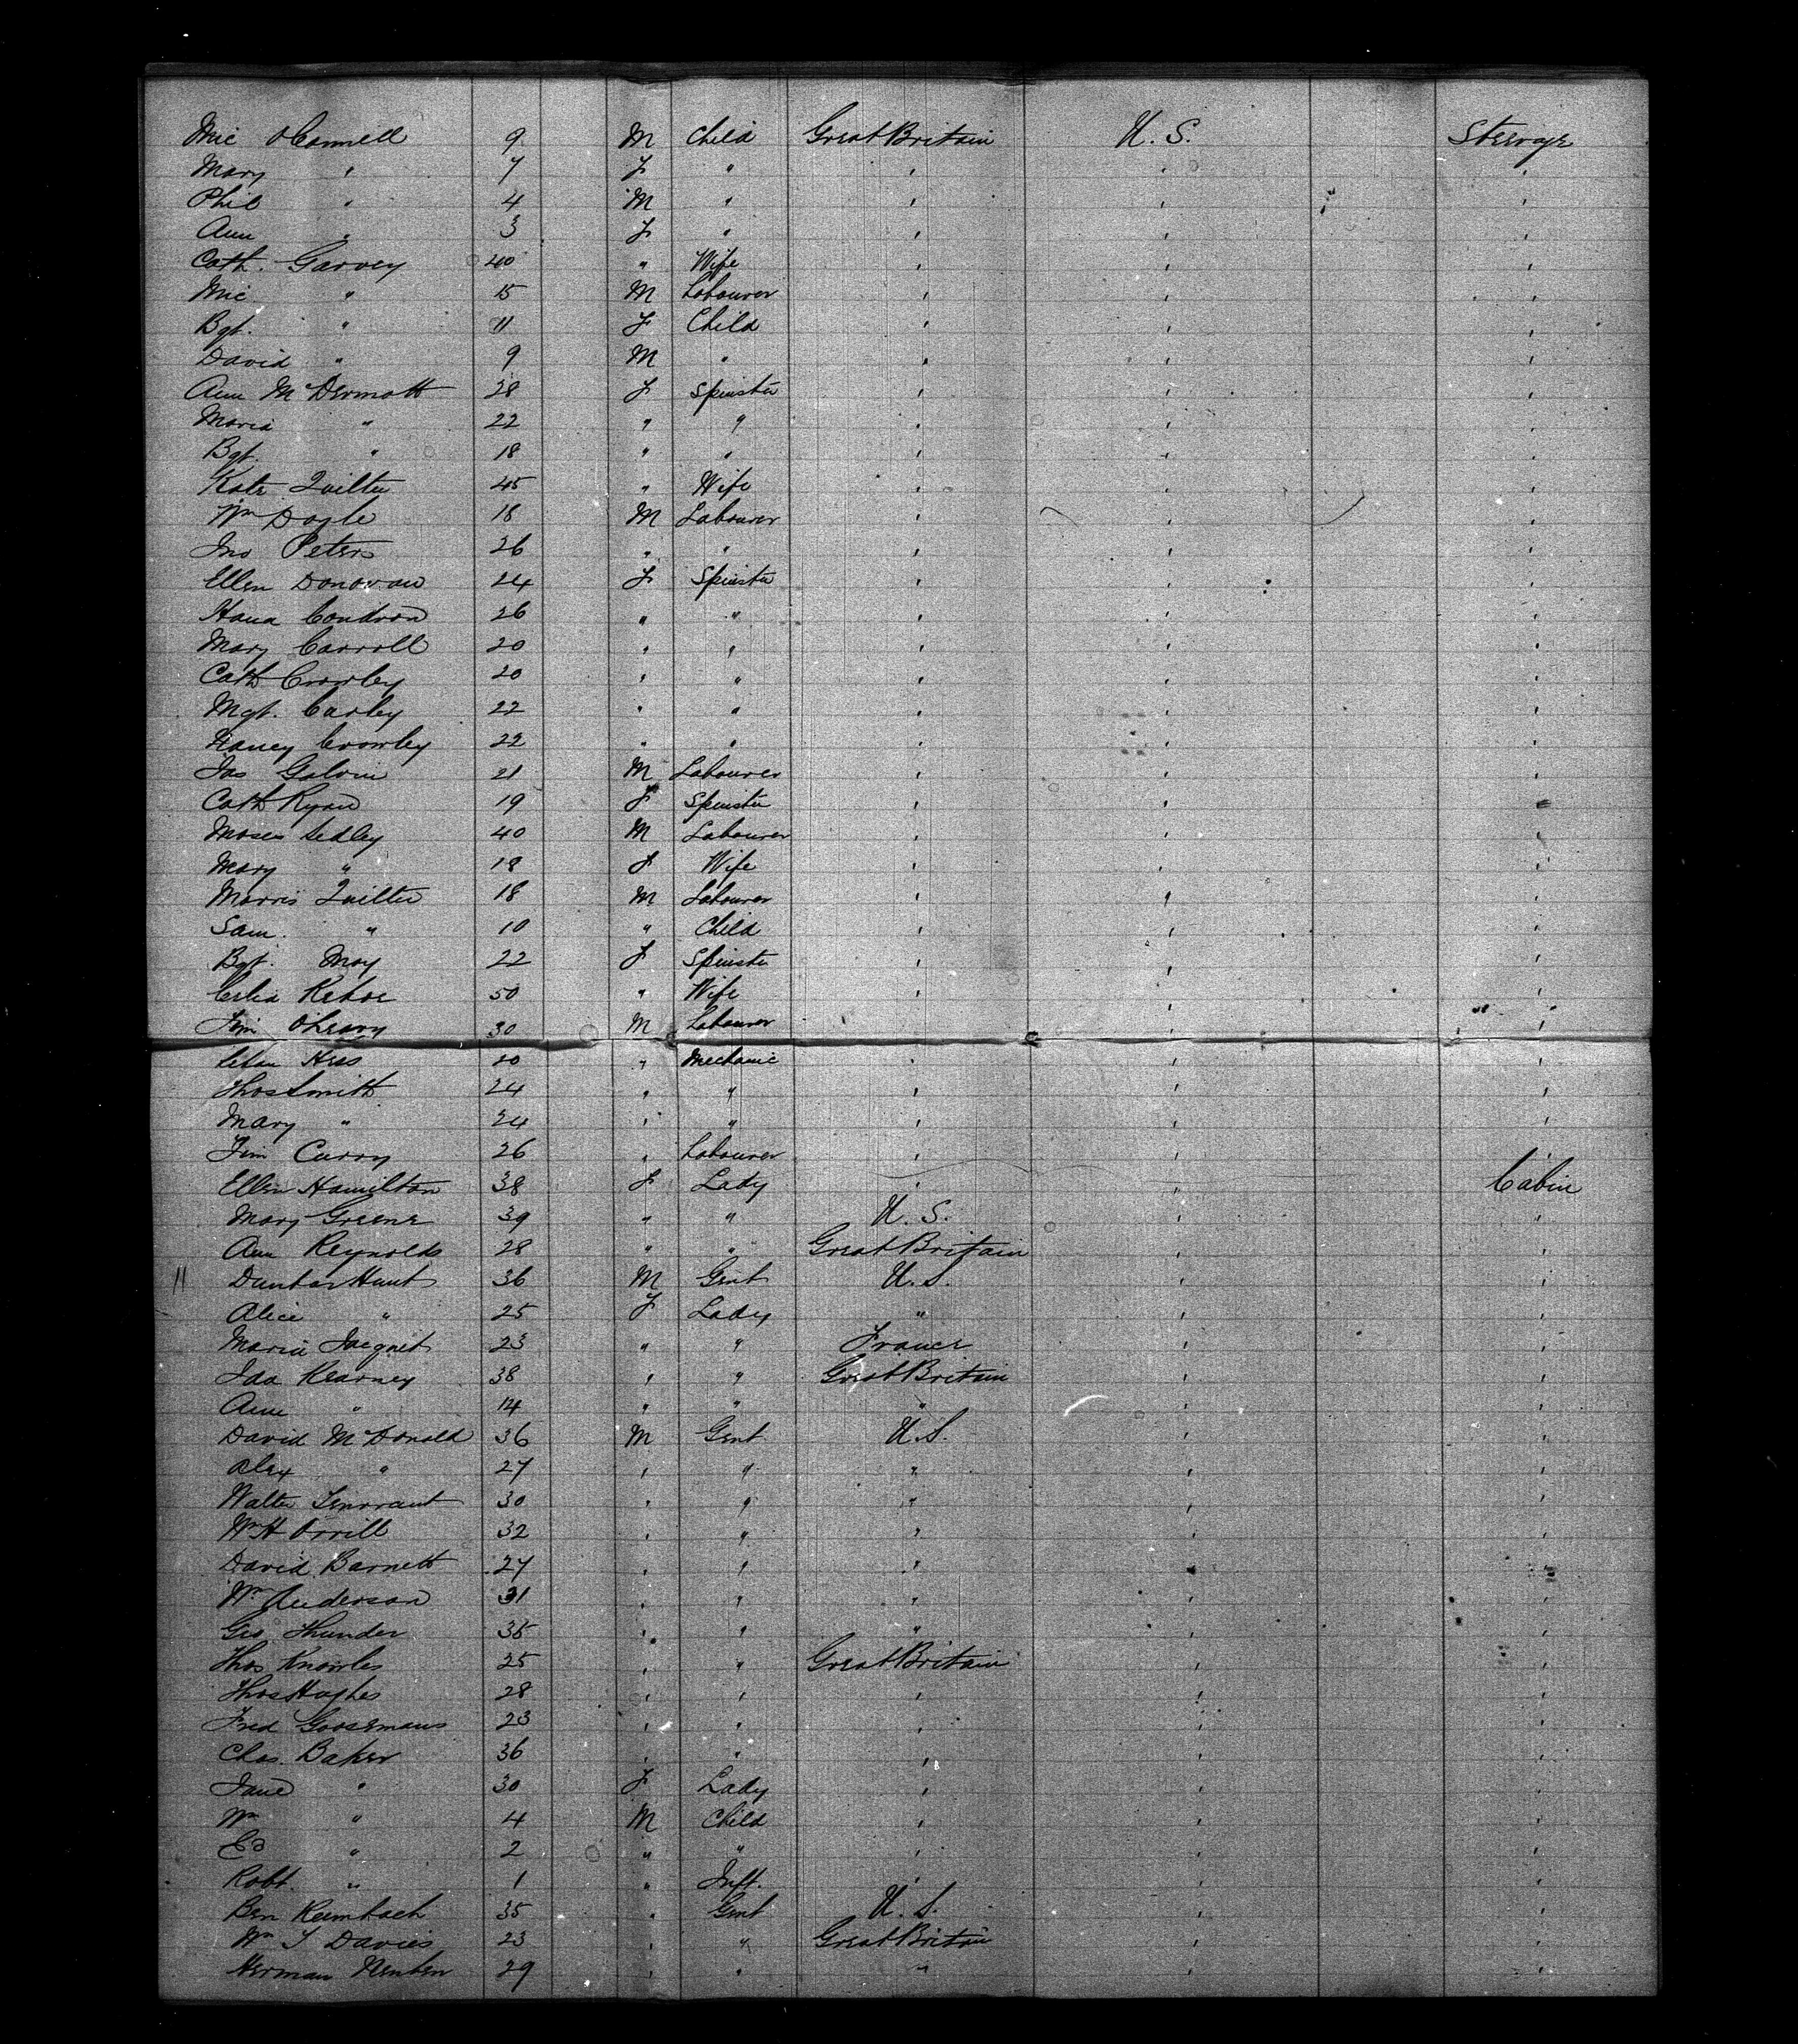 Mic OConnell 9 M Child Great Britain U.S. Steerage
Mary " 7 F " " " "
Phil " 4 M " " " "
Ann " 3 F " " " "
Cath. Garvey 40 " Wife " " "
Mic " 15 M Labourer " " "
Bgt. " 11 F Child " " "
David " 9 M " " " "
Ann McDermott 28 F Spinster " " "
Maria " 22 " " " " "
Bgt. " 18 " " " " "
Kate Quilter 45 " Wife " " "
Wm Doyle 18 M Labourer " " "
Jno Peters 26 " " " " "
Ellen Donovan 24 F Spinster " " "
Hana Condron 26 " " " " "
Mary Carroll 20 " " " " "
Cath Crowley 20 " " " " "
Mgt. Carley 22 " " " " "
Nancy Crowley 22 " " " " "
Jas Galvin 21 M Labourer " " "
Cath Ryan 19 F Spinster " " "
Moses Sedley 40 M Labourer " " "
Mary " 18 F Wife " " "
Morris Quilter 18 M Labourer " " "
Sam. " 10 " Child " " "
Bgt. May 22 F Spinster " " "
Celia Kehoe 50 " Wife " " "
Tim OLeary 30 M Labourer " " "
20 " Mechanic " " "
Thos Smith 24 " " " " "
Mary " 24 " " " " "
Tim Curry 26 " Labourer " " "
Ellen Hamilton 38 F Lady " " Cabin
Mary Greene 39 " " U.S. " "
Ann Reynolds 28 " " Great Britain " "
11 Dunbar Hunt 36 M Gent U.S. " "
Alice " 25 F Lady " " "
Maria Jacquet 23 " " France " "
Ida Kearney 38 " " Great Britain " "
Ann " 14 " " " " "
David McDonald 36 M Gent U.S. " "
Alex " 27 " " " " "
Walter 30 " " " " "
Wm H Orrill 32 " " " " "
David Barnett 27 " " " " "
Wm Anderson 31 " " " " "
Geo Thunder 35 " " " " "
Thos Knowles 25 " " Great Britain " "
Thos Hughes 28 " " " " "
Fred Goosemans 23 " " " " "
Chas. Baker 36 " " " " "
Jane " 30 F Lady " " "
Wm " 4 M Child " " "
Ed " 2 " " " " "
Robt. " 1 " Inft. " " "
Ben Reimbach 35 " Gent U.S. " "
Wm T Davies 23 " " Great Britain " "
Herman 29 " " " " "